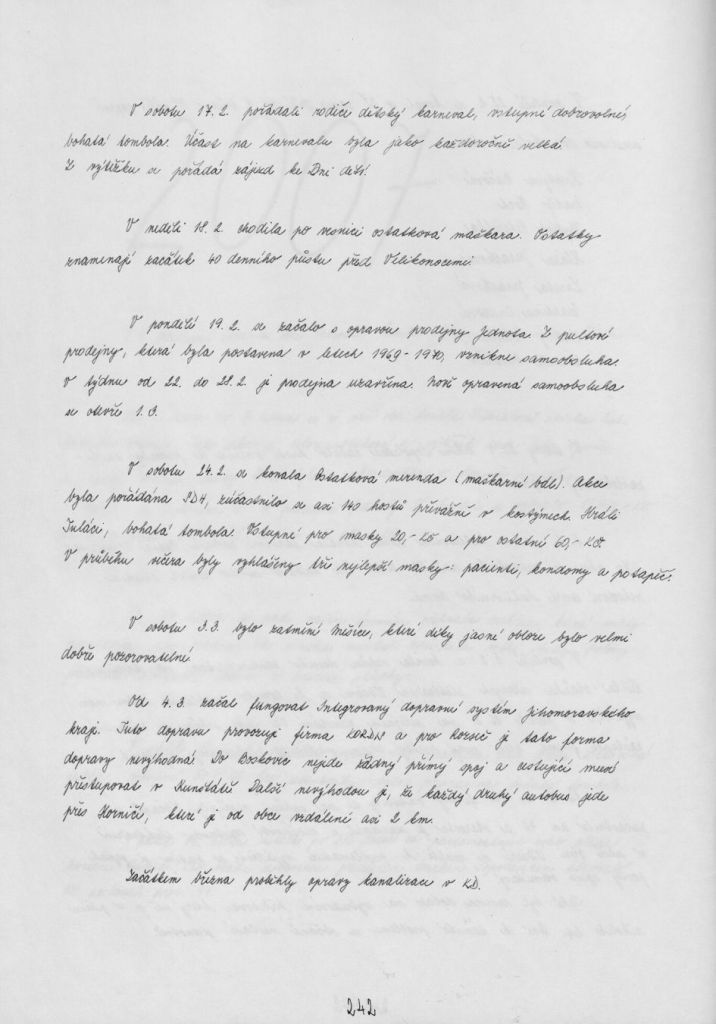 V sobotu 17. 2. pořádali rodiče dětský karneval, vstupné dobrovolné,
bohatá tombola. Účast na karnevalu byla jako každoročně velká.
Z výtěžku se pořádá zájezd ke Dni dětí.
V neděli 18. 2. chodila po vesnici ostatková maškara. Ostatky
znamenají začátek 40 denního půstu před Velikonocemi.
V pondělí 19. 2. se začalo s opravou prodejny Jednota. Z pultové
prodejny, která byla postavena v letech 1969-1970, vznikne samoobsluha.
V týdnu od 22. do 28. 2. je prodejna uzavřena. Nově opravená samoobsluha
se otevře 1. 3.
V sobotu 24. 2. se konala Ostatková merenda (maškarní bál). Akce
byla pořádána SDH, zúčastnilo se asi 140 hostů převážně v kostýmech. Hráli
Tuláci, bohatá tombola. Vstupné pro masky 20,- Kč a pro ostatní 60,- Kč.
V průběhu večera byly vyhlášeny tři nejlepší masky: pacienti, kondomy a potapěč.
V sobotu 3. 3. bylo zatmění Měsíce, které díky jasné obloze bylo velmi
dobře pozorovatelné.
Od 4. 3. začal fungovat Integrovaný dopravní systém Jihomoravského
kraje. Tuto dopravu provozuje firma KORDIS a pro Rozseč je tato forma
dopravy nevýhodná. Do Boskovic nejede žádný přímý spoj a cestující musí
přestupovat v Kunštátě. Další nevýhodou je, že každý druhý autobus jede
přes Horničí, které je od obce vzdálené asi 2 km.
Začátkem března proběhly opravy kanalizace v KD.
242